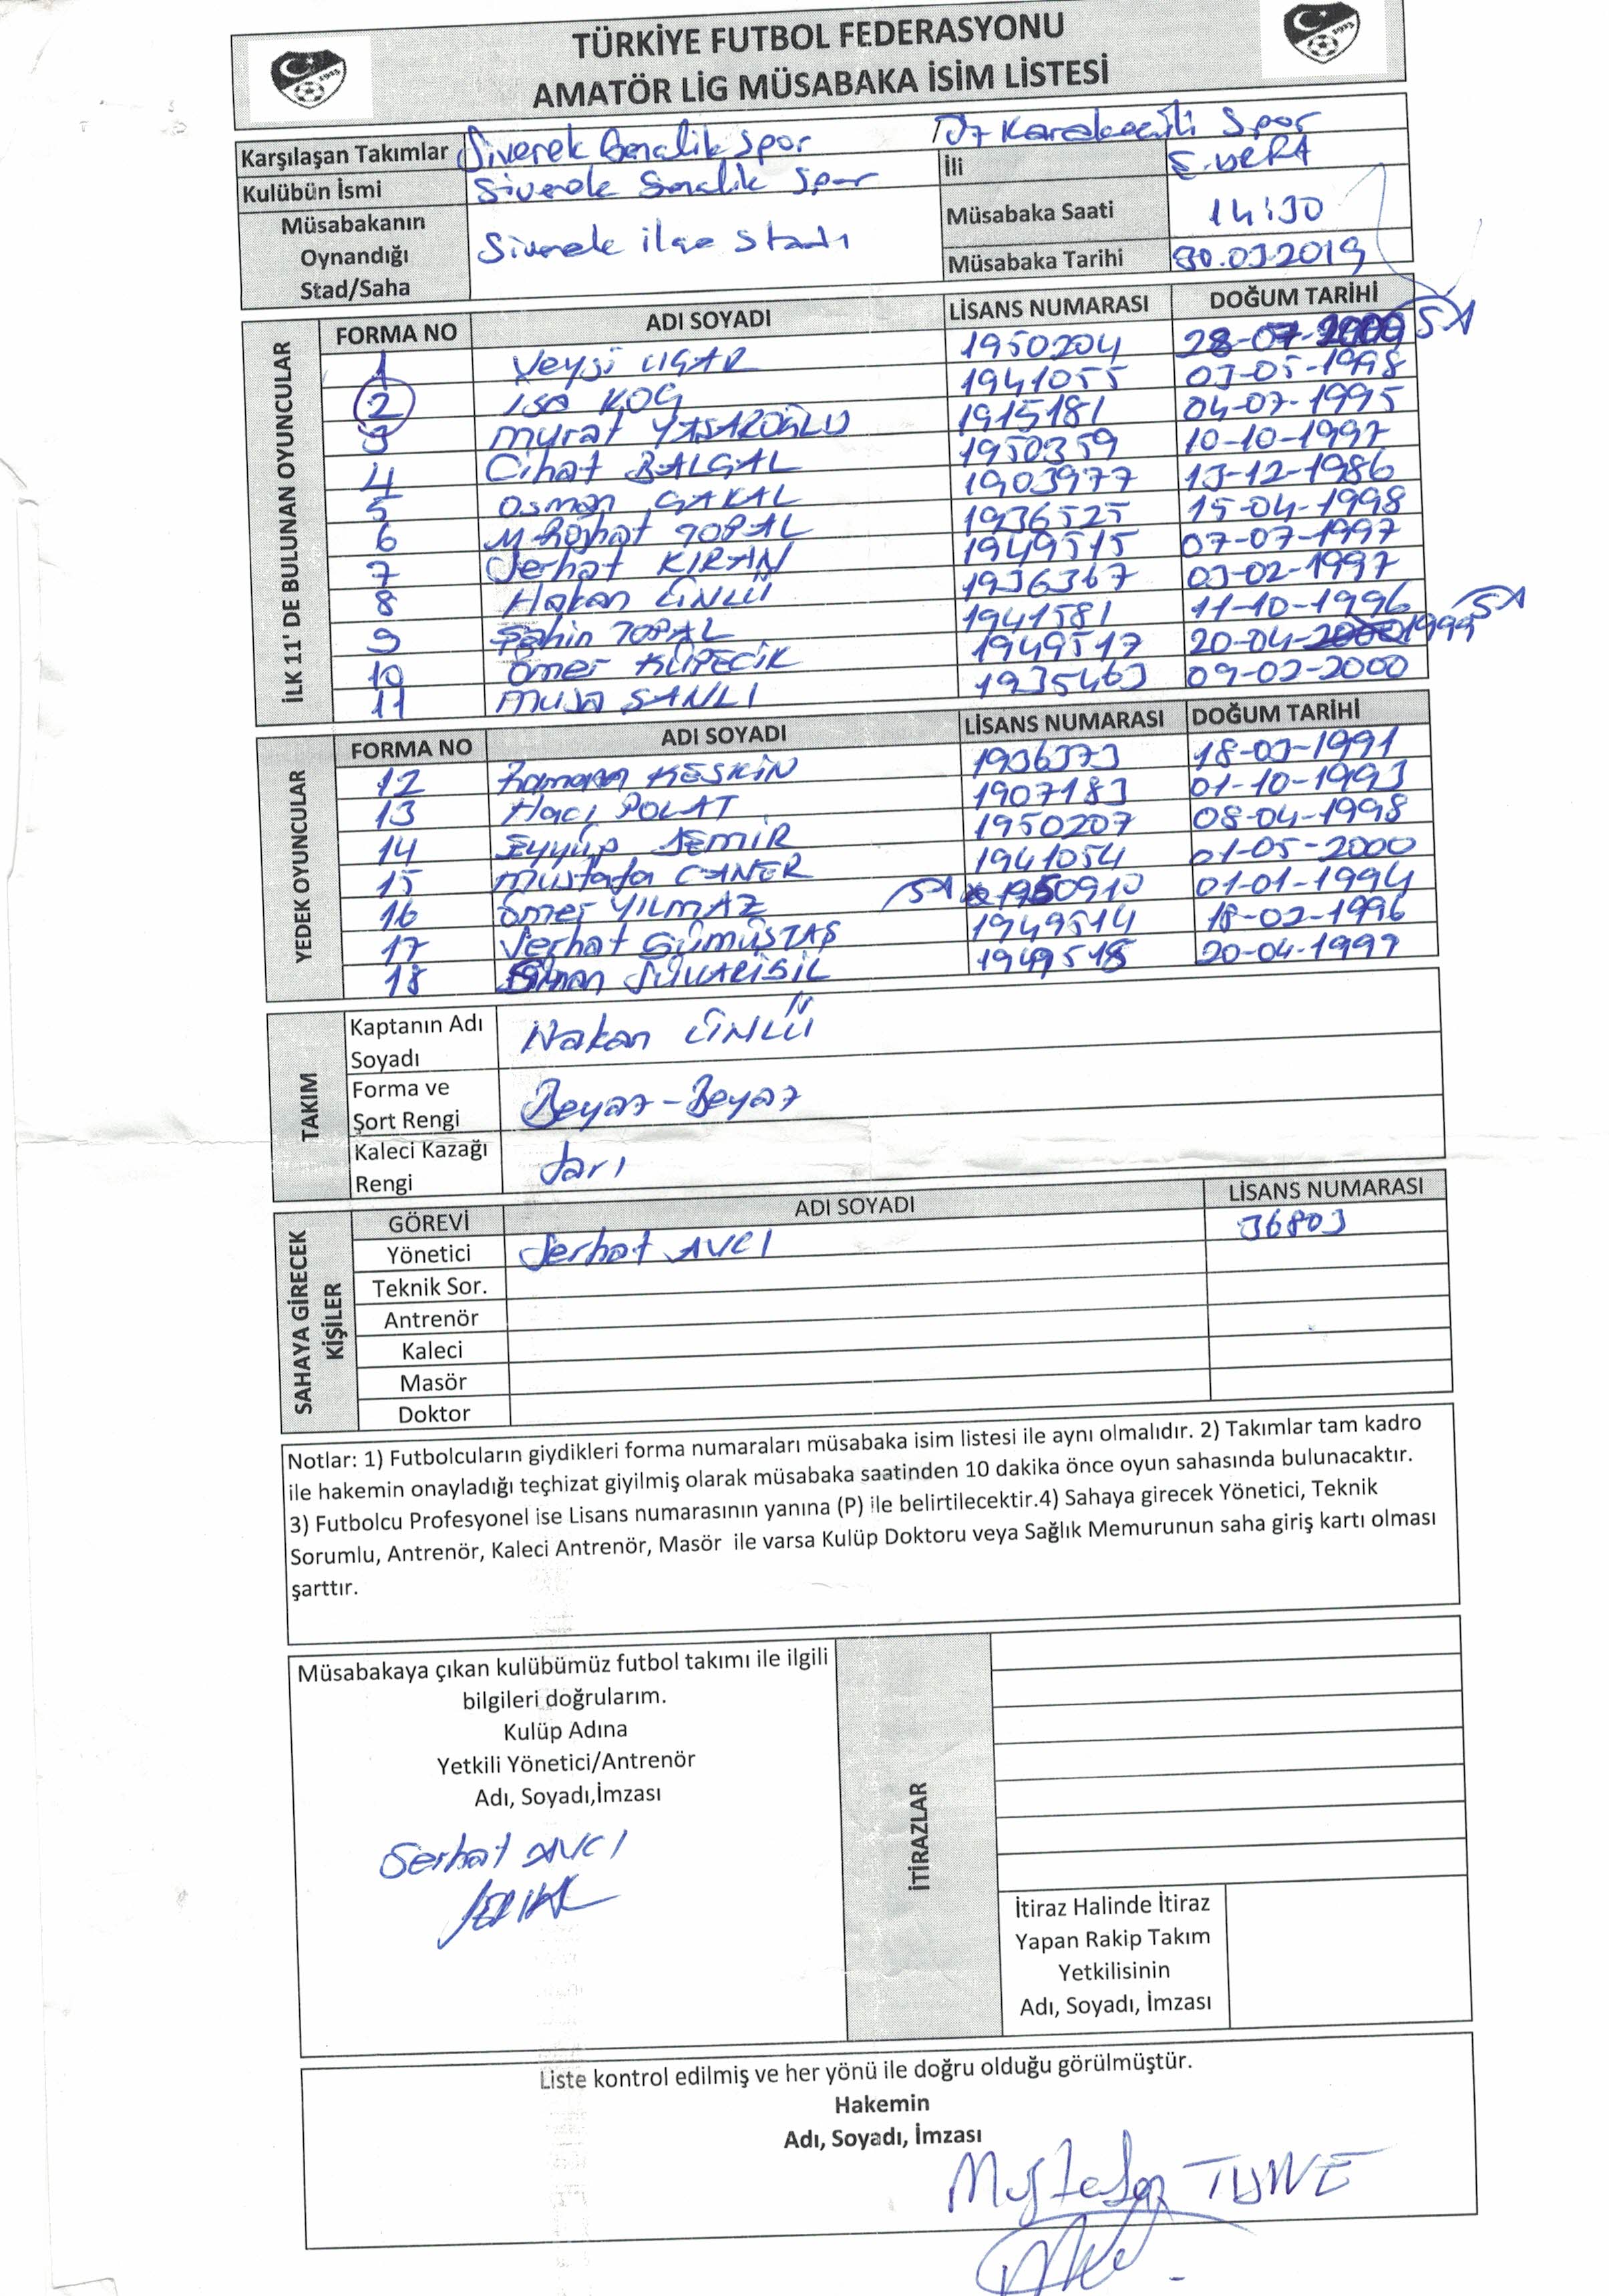 TÜRKİYE FUTBOL FEDERASYONU
AMATÖR LİG MÜSABAKA İSİM LİSTESİ
Karşılaşan Takımlar Siverek Genclik Spor Karakecili Spor
Kulübün İsmi Siverek Genclik Spor İli Ş.URFA
Müsabakanın Oynandığı Stad/Saha Siverek ilçe Stadı Müsabaka Saati 14:30
Müsabaka Tarihi 30.03.2019
İLK 11' DE BULUNAN OYUNCULAR
FORMA NO ADI SOYADI LİSANS NUMARASI DOĞUM TARİHİ
1 Veysi UÇAR 1950204 28-07-2000
2 isa KOÇ 1941055 03-05-1998
3 Murat YAŞAROĞLU 1915181 04-07-1995
4 Cihat BALGAL 1950359 10-10-1997
5 Osman ÇAKAL 1903977 13-12-1986
6 M. Rojhat TOPAL 1936525 15-04-1998
7 Serhat KIRAN 1949515 07-07-1997
8 Hakan ÜNLÜ 1936367 03-02-1997
9 Şahin TOPAL 1941581 11-10-1996
10 Ömer KÜPECİK 1949517 20-04-1999
11 Musa ŞANLI 1935463 09-02-2000
YEDEK OYUNCULAR
FORMA NO ADI SOYADI LİSANS NUMARASI DOĞUM TARİHİ
12 Ramazan KESKİN 1936373 18-03-1991
13 Hacı POLAT 1907183 01-10-1993
14 Eyyüp DEMİR 1950207 08-04-1998
15 Mustafa CANER 1941054 01-05-2000
16 Ömer YILMAZ 1950910 01-01-1994
17 Serhat GÜMÜŞTAŞ 1949514 18-02-1996
18 1949518 20-04-1999
TAKIM
Kaptanın Adı Soyadı Hakan ÜNLÜ
Forma ve Şort Rengi Beyaz-Beyaz
Kaleci Kazağı Rengi Sarı
SAHAYA GİRECEK KİŞİLER
GÖREVİ ADI SOYADI LİSANS NUMARASI
Yönetici Serhat AVCI 36803
Teknik Sor.
Antrenör
Kaleci
Masör
Doktor
Notlar: 1) Futbolcuların giydikleri forma numaraları müsabaka isim listesi ile aynı olmalıdır. 2) Takımlar tam kadro
ile hakemin onayladığı teçhizat giyilmiş olarak müsabaka saatinden 10 dakika önce oyun sahasında bulunacaktır.
3) Futbolcu Profesyonel ise Lisans numarasının yanına (P) ile belirtilecektir.4) Sahaya girecek Yönetici, Teknik
Sorumlu, Antrenör, Kaleci Antrenör, Masör ile varsa Kulüp Doktoru veya Sağlık Memurunun saha giriş kartı olması
şarttır.
Müsabakaya çıkan kulübümüz futbol takımı ile ilgili
bilgileri doğrularım.
Kulüp Adına
Yetkili Yönetici/Antrenör
Adı, Soyadı,İmzası
Serhat AVCI
İTİRAZLAR
İtiraz Halinde İtiraz
Yapan Rakip Takım
Yetkilisinin
Adı, Soyadı, İmzası
Liste kontrol edilmiş ve her yönü ile doğru olduğu görülmüştür.
Hakemin
Adı, Soyadı, İmzası
Mustafa